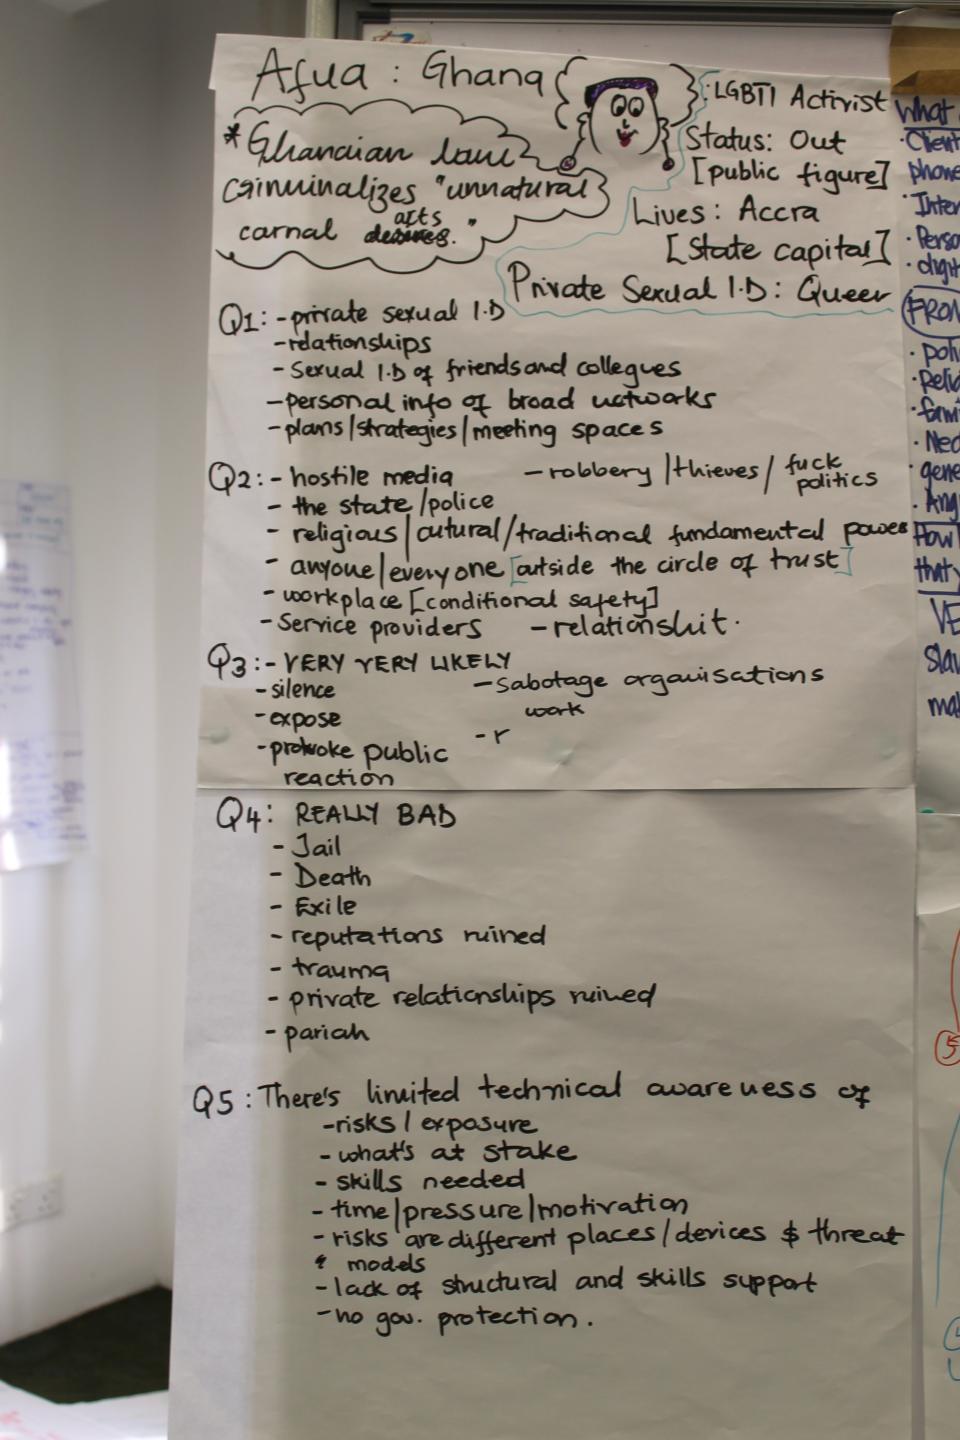 Afua : Ghana
*Ghanaian law
criminalizes "unnatural
carnal acts."
: LGBTI Activist
Status: Out
[public figure]
Lives: Accra
[State capital]
Private Sexual I.D: Queer
Q1: - private sexual I.D
- relationships
- Sexual I.D of friends and collegues
- personal info of broad networks
- plans/strategies/meeting spaces
Q2: - hostile media
- the state/police
- religious/cutural/traditional fundamental power
- anyone/everyone [outside the circle of trust]
- workplace [conditional safety]
- Service providers
- robbery/thieves/fuck
politics
- relationshit.
Q3: - VERY VERY LIKELY
- silence
- expose
- provoke public
reaction
- Sabotage organisations
work
- r
Q4: REALLY BAD
- Jail
- Death
- Exile
- reputations ruined
- trauma
- private relationships ruined
- pariah
Q5: There's limited technical awareness of
- risks/exposure
- what's at stake
- skills needed
- time/pressure/motivation
- risks are different places/devices $ threat
models
- lack of structural and skills support
- no gov. protection.
What
· Client
phone
· Inter
· Perso
· digit
FROM
· poli
· Relig
· fami
· gene
· Ang
How
that
VE
Slav
mal
5